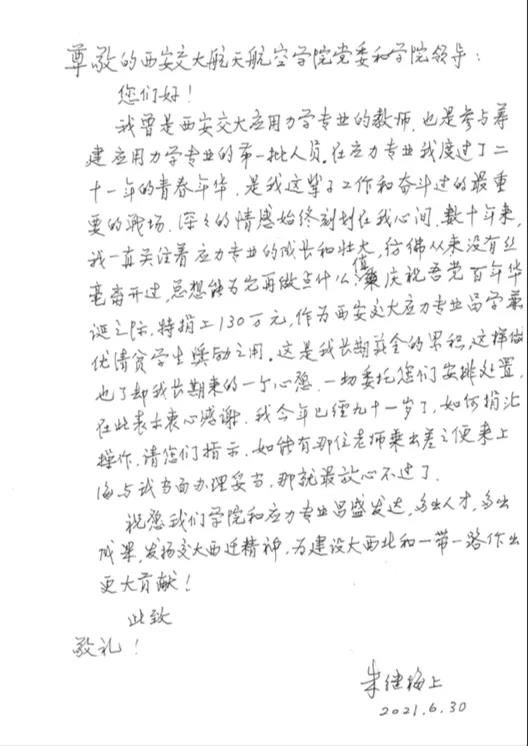 尊敬的西安交大航天航空学院党委和学院领导：
您们好！
我曾是西安交大应用力学专业的教师，也是参与筹
建应用力学专业的第一批人员。在应力专业我度过了二
十一年的青春年华，是我这辈子工作和奋斗过的最重
要的战场，深深的情感始终刻划在我心间，数十年来，
我一直关注着应力专业的成长和壮大，仿佛从来没有丝
毫离开过，总想能为它再做点什么，值此庆祝吾党百年华
诞之际，特捐上130万元，作为西安交大应力专业品学兼
优清贫学生奖励之用。这是我长期薪金的累积，这样做
也了却我长期来的一个心愿，一切委托您们安排处置，
在此表示衷心感谢。我今年已经九十一岁了，如何捐汇
操作，请您们指示，如能有那位老师乘出差之便来上
海与我当面办理妥当，那就最放心不过了。
祝愿我们学院和应力专业昌盛发达，多出人才，多出
成果，发扬交大西迁精神，为建设大西北和一带一路作出
更大贡献！
此致
敬礼！
朱继梅上
2021.6.30